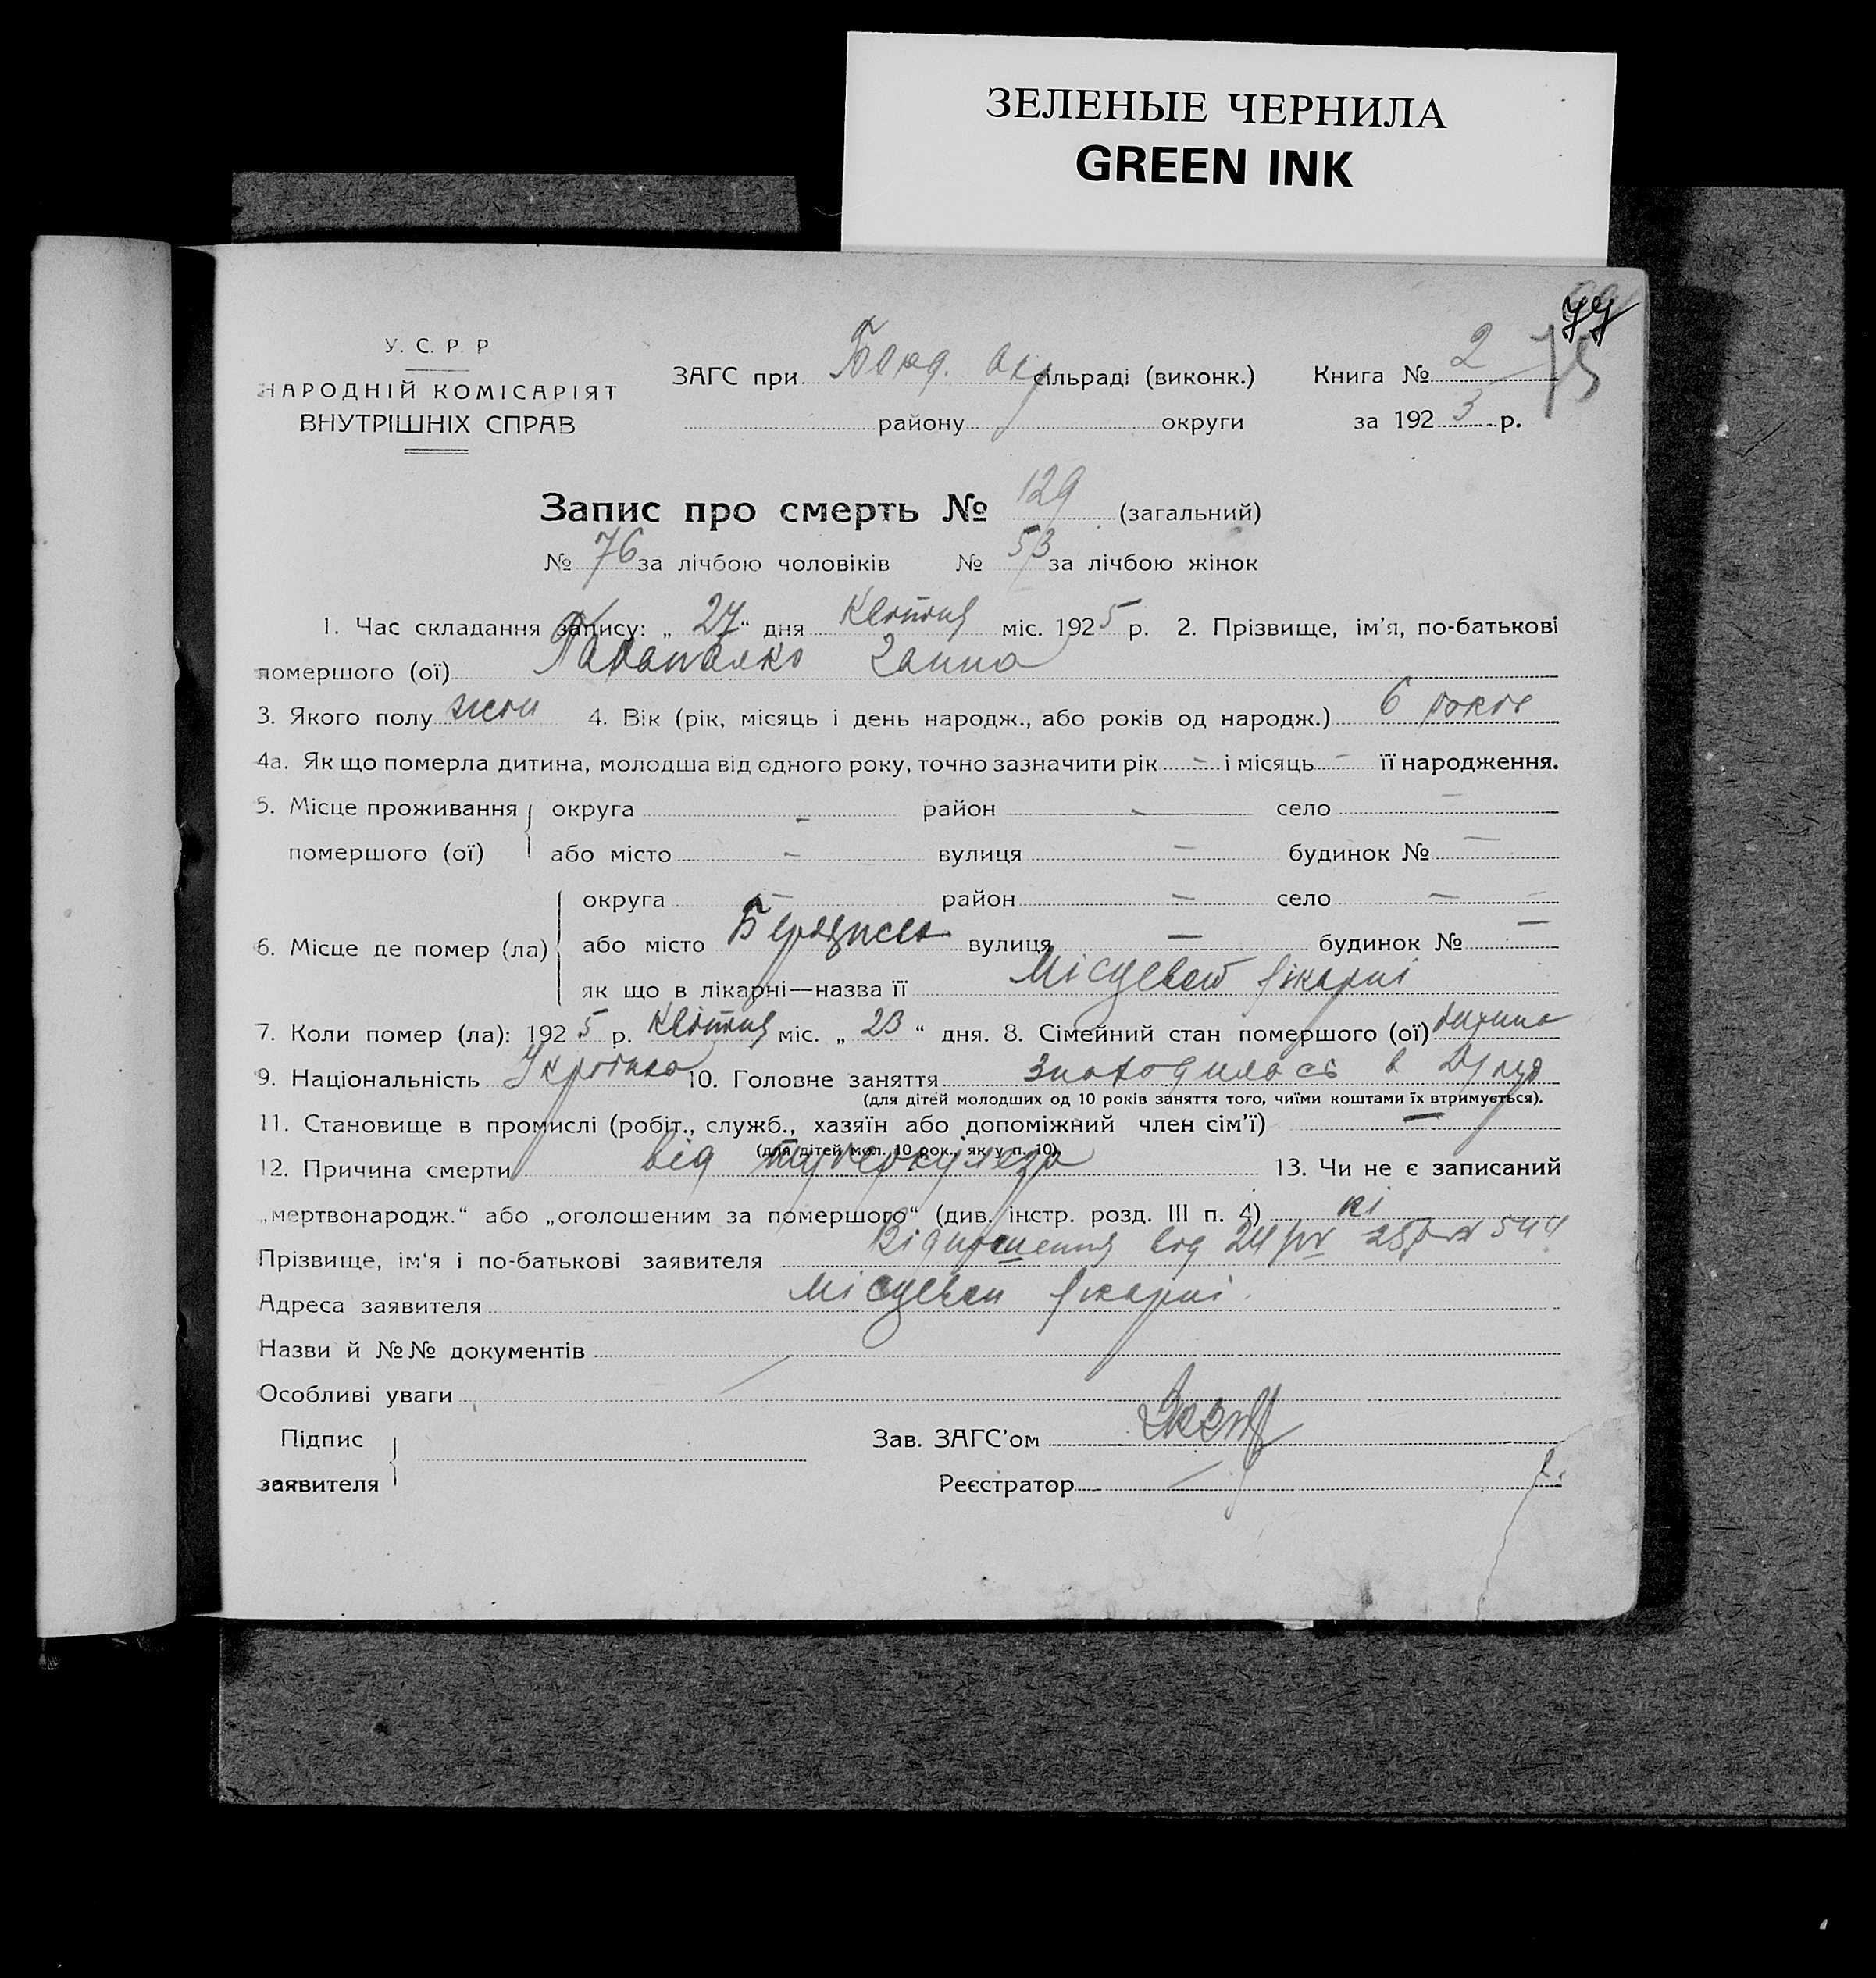 ЗЕЛЕНЫЕ ЧЕРНИЛА
GREEN INK
У. С. Р. Р
НАРОДНІЙ КОМІСАРІЯТ
ВНУТРІШНІХ СПРАВ
75
ЗАГС при Берд. Окр сільраді (виконк.) Книга № 2
району округи за 1923 р.
Запис про смерть № 129 (загальний)
№ 76 за лічбою чоловіків № 53 за лічбою жінок
1. Час складання запису: „ 27 “ дня Квітня міс. 1925 р. 2. Прізвище, ім’я, по-батькові
помершого (ої) Ганна
3. Якого полу жін 4. Вік (рік, місяць і день народж., або років од народж.) 6 років
4а. Як що померла дитина, молодша від одного року, точно зазначити рік – і місяць – її народження.
5. Місце проживання округа – район – село –
помершого (ої) або місто – вулиця – будинок № –
округа – район – село –
6. Місце де помер (ла) або місто вулиця – будинок № –
як що в лікарні—назва її Місцевой лікарні
7. Коли помер (ла): 1925 р. Квітня міс. „ 23 “ дня. 8. Сімейний стан помершого (ої) дитина
9. Національність 10. Головне заняття знаходилась в
(для дітей молодших од 10 років заняття того, чиїми коштами їх втримується).
11. Становище в промислі (робіт., служб., хазяїн або допоміжний член сім’ї) –
(для дітей мол. 10 рок., як у п. 10)
12. Причина смерти від туберкулеза 13. Чи не є записаний
„мертвонародж.“ або „оголошеним за помершого“ (див. інстр. розд. III п. 4) ні
Прізвище, ім‘я і по-батькові заявителя Відношення від 24/IV 25 р. № 544
Адреса заявителя Місцевои лікарні.
Назви й №№ документів
Особливі уваги
Підпис Зав. ЗАГС’ом
заявителя Реєстратор